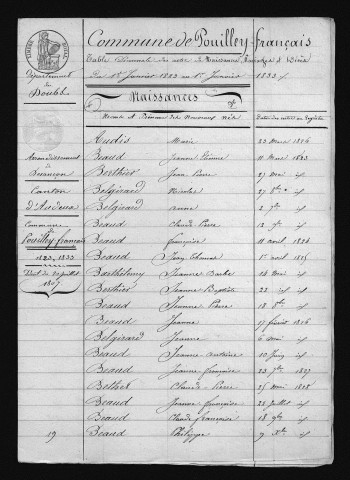 Commune de Pouilley-français
Table Décennale des actes de Naissances, Mariages et Décès
Du 1er Janvier 1823 au 1er Janvier 1833
Département
du
Doubs
Naissances
Noms et Prénoms des Nouveaux Nés
Dates des actes au Registre
Audis Marie 23 Mars 1826
Beaud Jeanne 11 Mars 1823
Berthier Jean Pierre 27 Mai id
Belgirard Nicolas 27 8bre id
Belgirard Anne 2 9bre id
Beaud Claude Pierre 12 9bre id
Beaud françoise 11 avril 1824
Beaud 1er août 1825
Barthélemy Jeanne Barbe 16 Mai id
Berthier Jeanne Baptiste 22 id id
Beaud Jeanne Pierre 18 8bre id
Beaud Jeanne 17 février 1826
Belgirard Jeanne 6 Mai id
Beaud Jeanne antoine 10 Juin id
Beaud Jeanne françoise 23 7bre 1827
Bethet Claude Pierre 25 Mai 1828
Beaud Jeanne françoise 20 Juillet id
Beaud Claude françoise 18 9bre id
Beaud Philippe 9 Xbre id
Arrondissement
de
Besançon
Canton
d'Audeux
Commune
Pouilley-français
1823, 1833
Décret du 20 juillet
1807
19